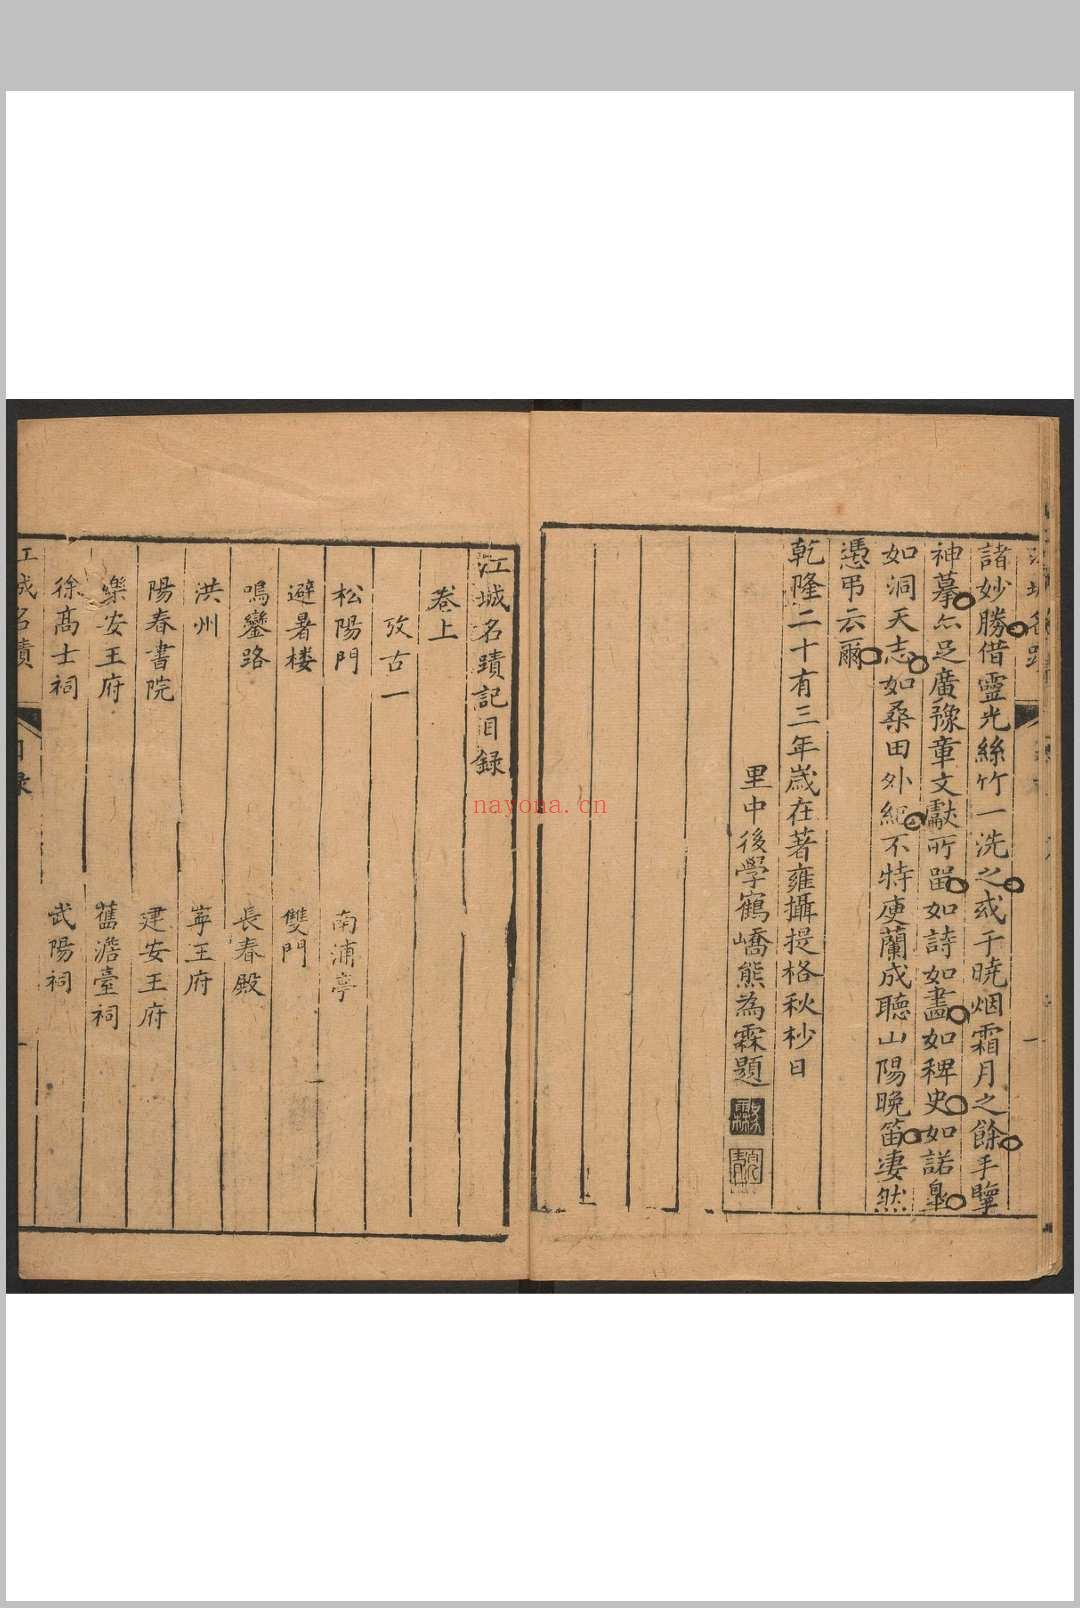 諸妙勝借靈光絲竹一洗之或于曉烟霜月之餘手墾
神摹亦足廣豫章文獻所留如詩如畫如稗史如諾臯
如洞天志如桑田外紀不特庾蘭成聽山陽晩笛凄然
憑弔云爾
乾隆二十有三年歲在著雍攝提格秋杪日
里中後學鶴嶠熊為霖題
江城名蹟記目錄
卷上
攷古一
松陽門
南浦亭
避暑楼
雙門
鳴鑾路
長春殿
洪州
寧王府
陽春書院
建安王府
樂安王府
舊澹臺祠
徐高士祠
武陽祠
江城名蹟
目錄
一
nayona.cn